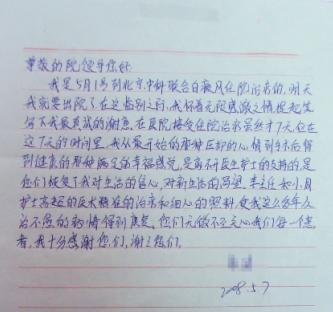 尊敬的院领导你好:
我是5月1号到北京中科联合白癜风住院治疗的,明天
我就要出院了在这临别之际,我怀着无限感激之情提起笔
写下我最真诚的谢意,在医院接受住院治疗虽然才7天但在
这7天的时间里,我从最开始的那种压抑的心情到今天得
到健康的那种满足的幸福感觉,是离不开医生护士的支持的是
你们使我了我对生活的信心,对新生活的渴望,李主任和小月
护士高超的医术精湛的治疗和细心的照料,使我这么多年久
治不愈的病情得到康复。您们无微不至关心我们每一个患
者,我十分感谢您们,谢谢您们。
5.7